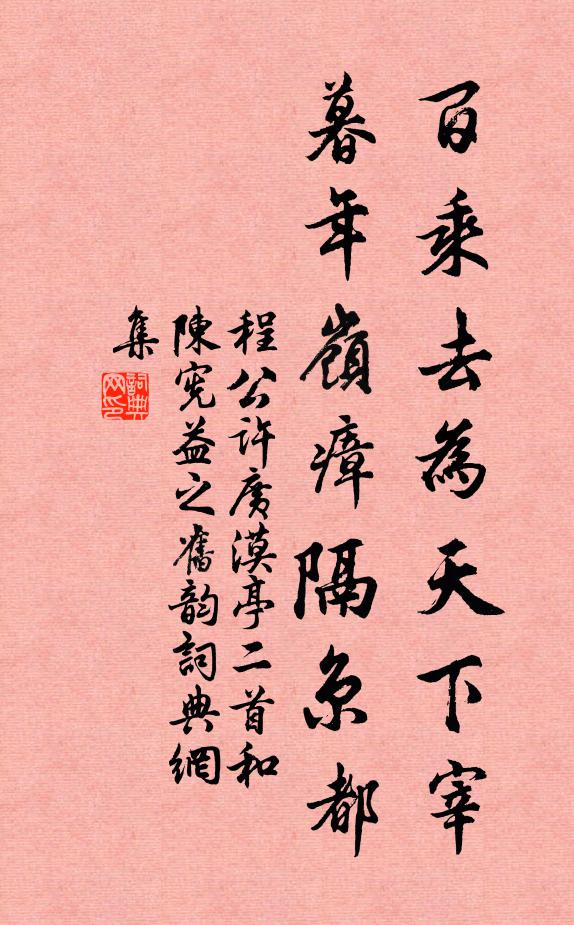 百乘去為天下宰
暮年嶺瘴隔京都
程公許廣漠亭二首和
陳寃益之舊韵詞典網
集
詞典網印